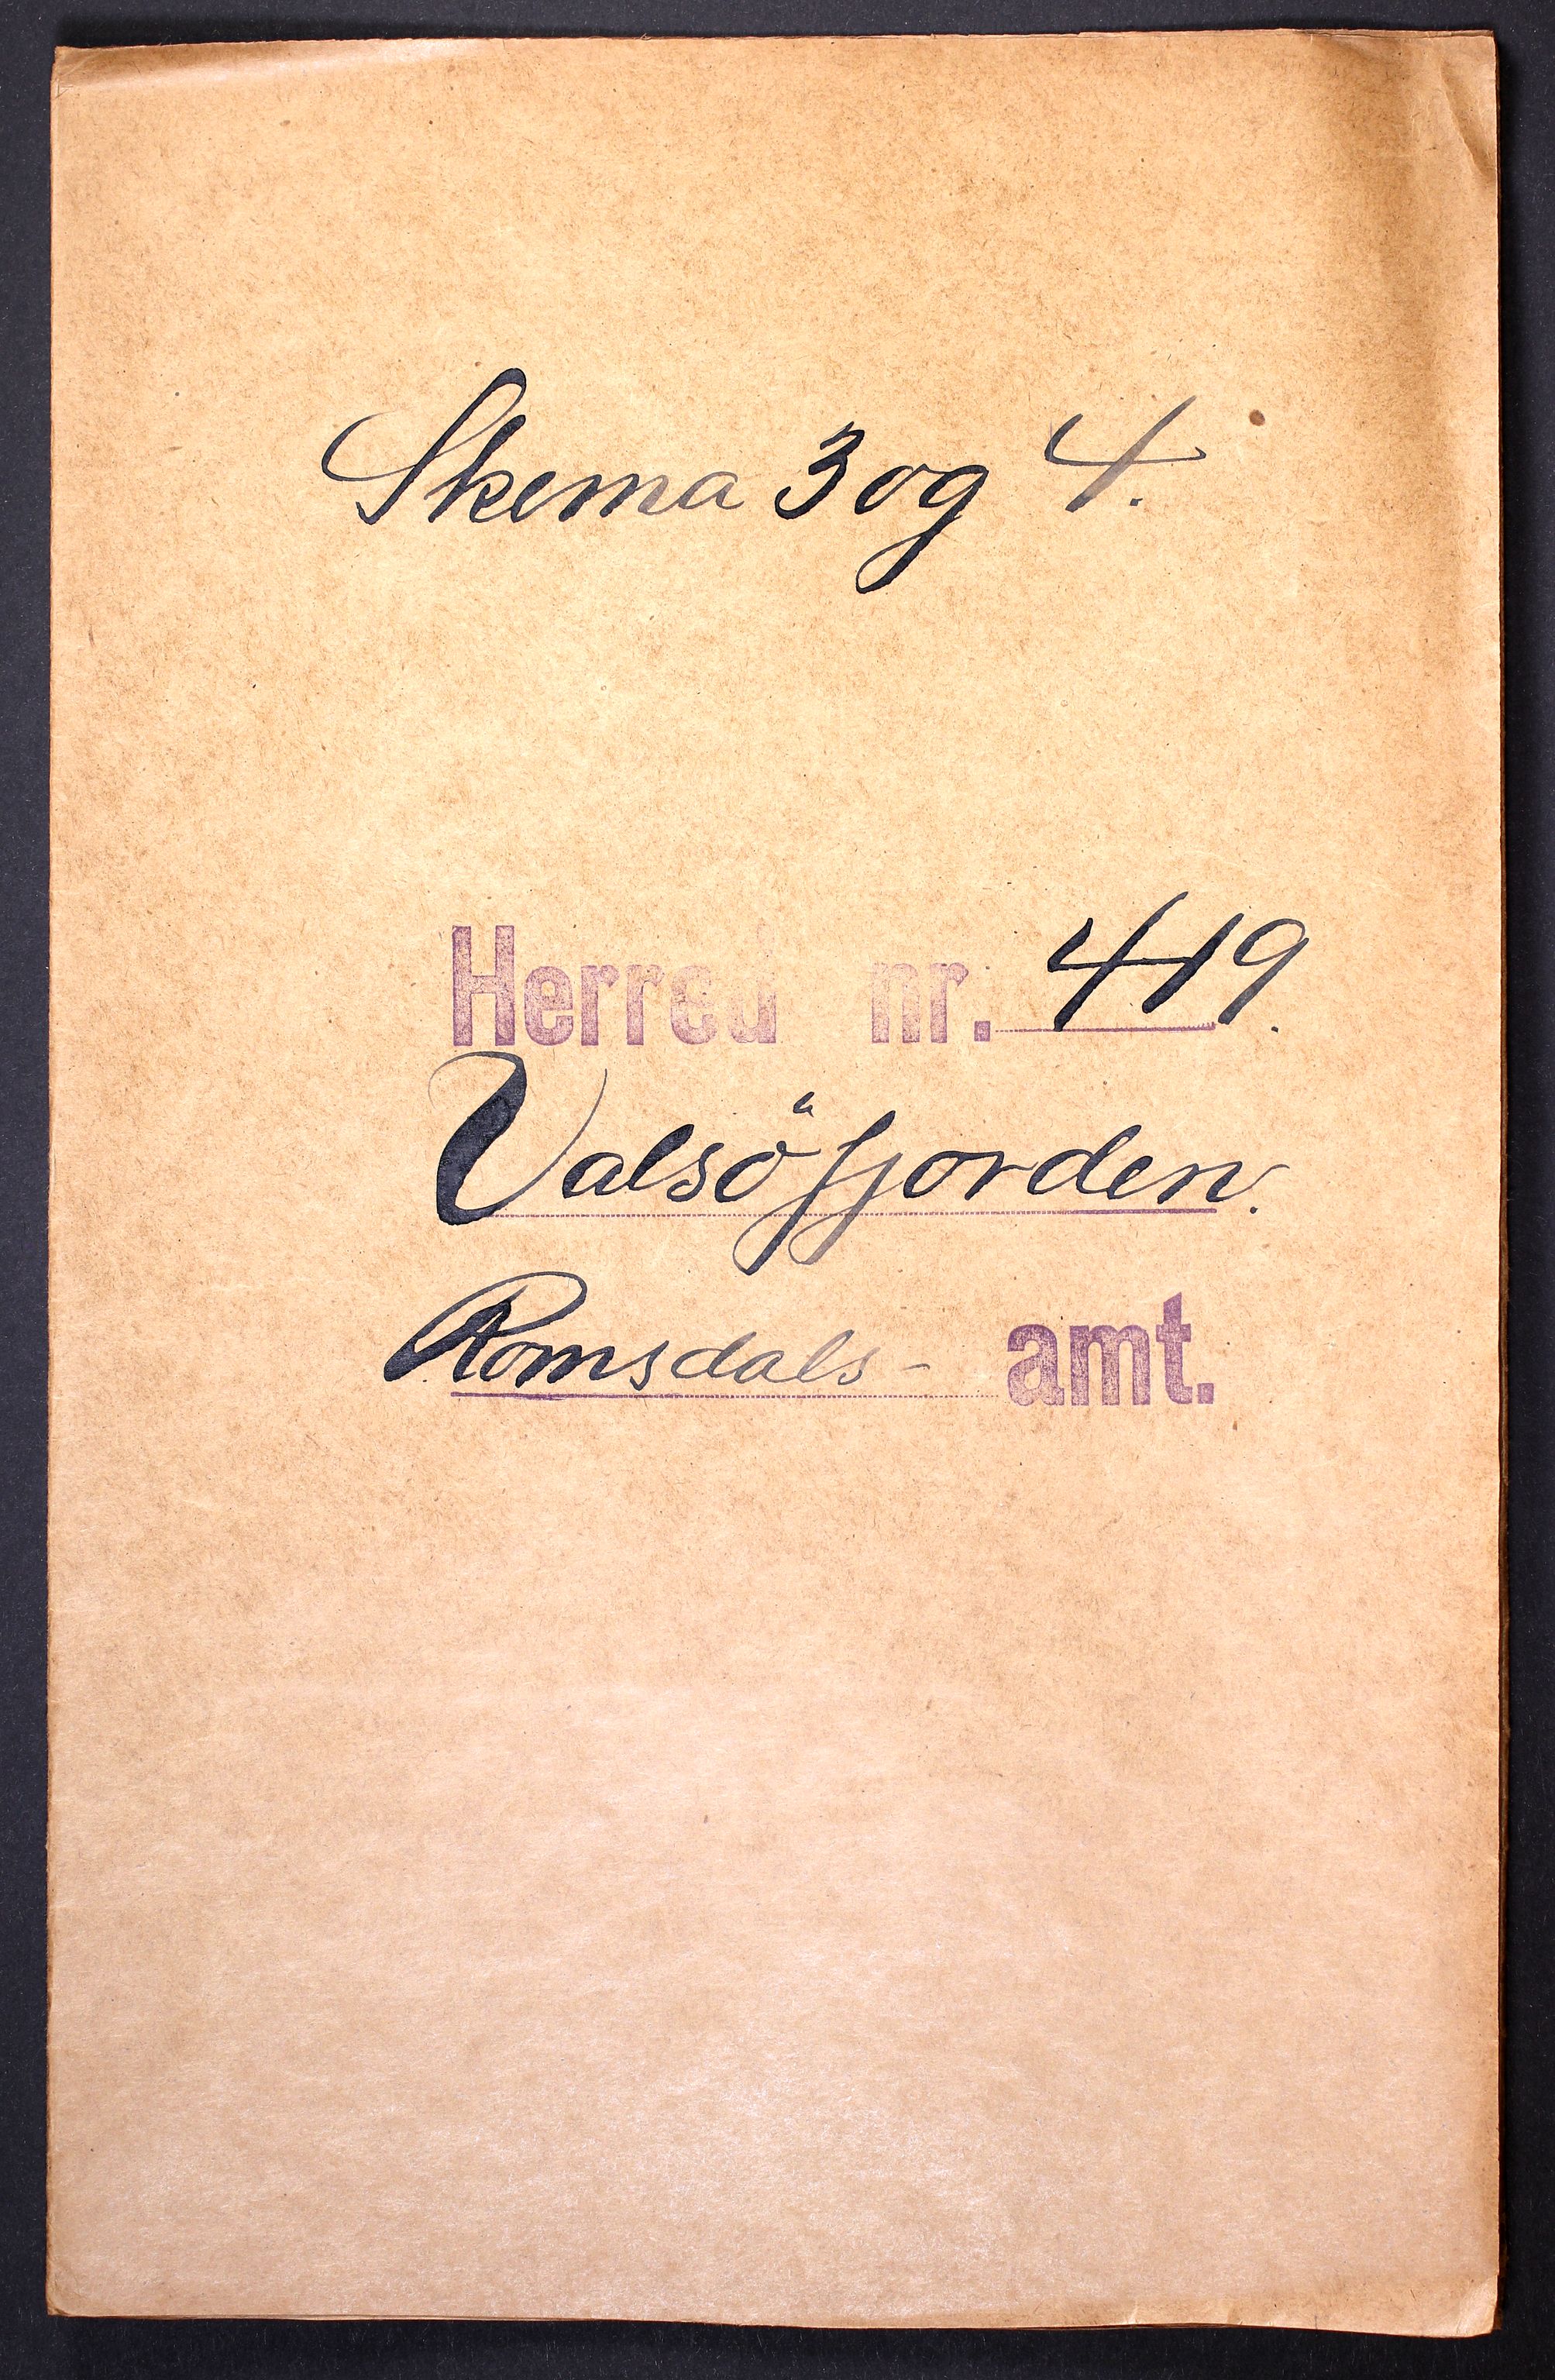 Skema 3 og 4.
Herred nr. 419.
Valsöfjorden.
Romsdals- amt.